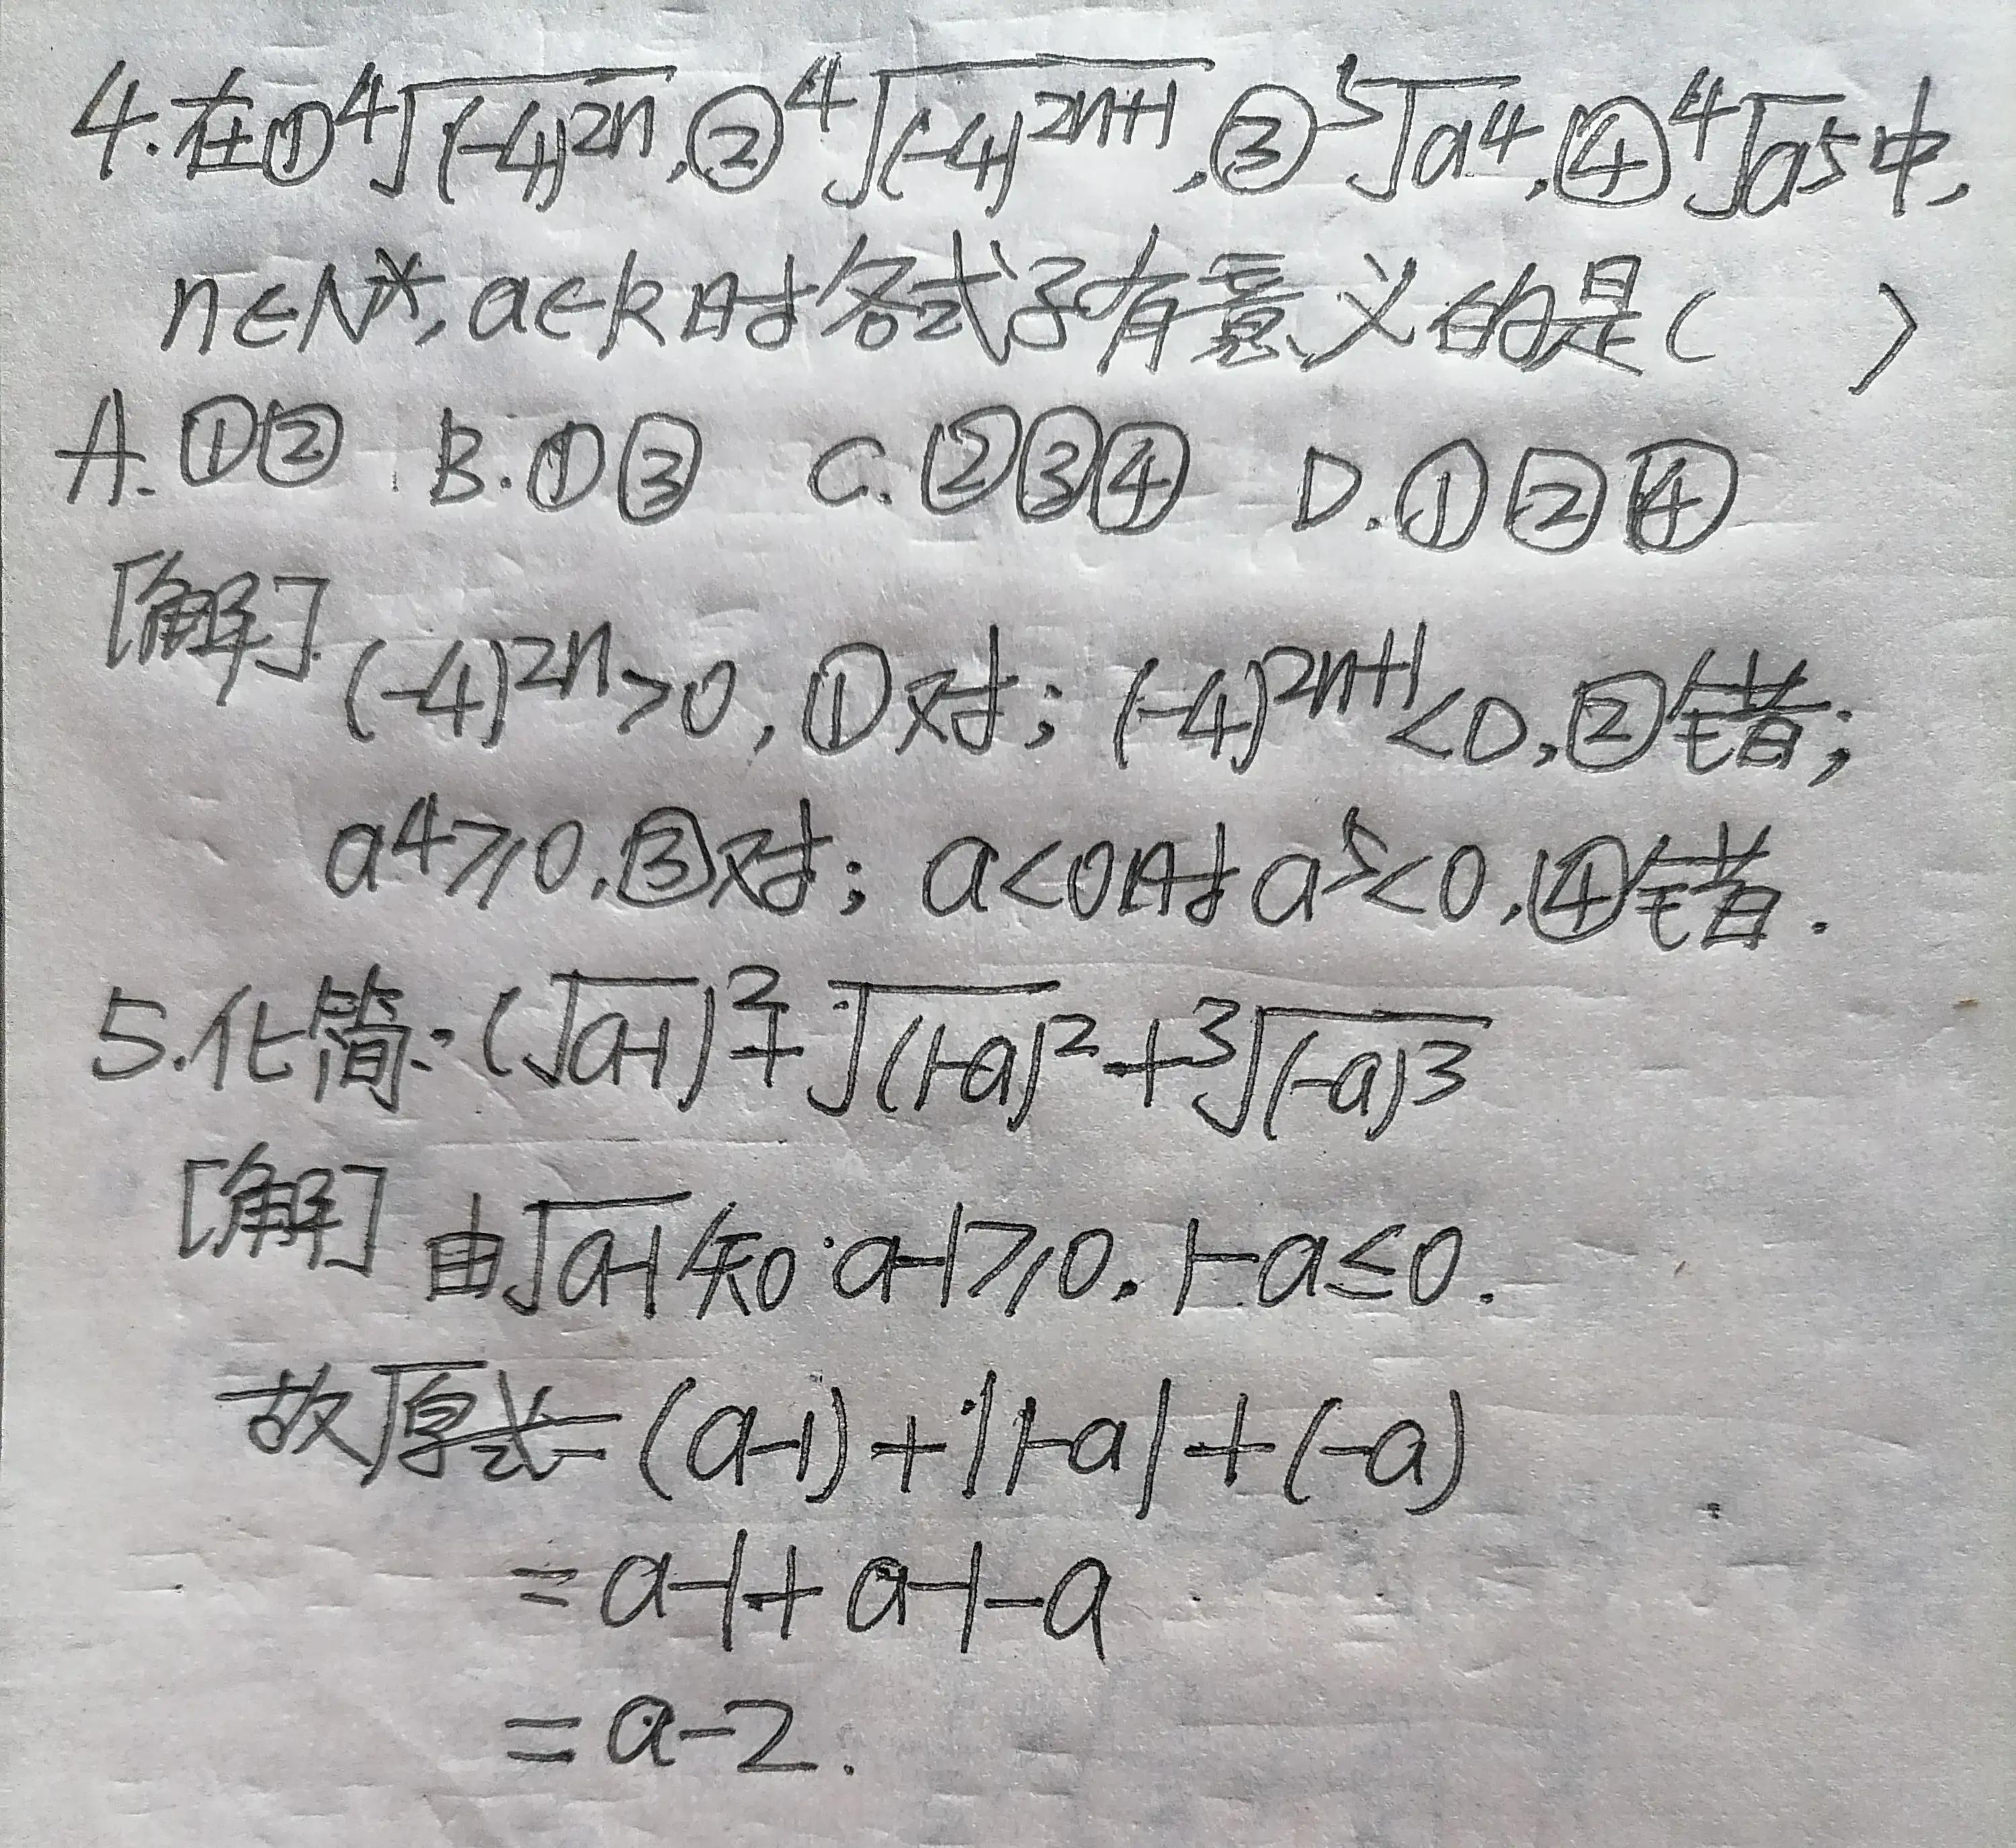 4.在①⁴√(-4)²ⁿ,②⁴√(-4)²ⁿ⁺¹,③⁵√a⁴,④⁴√a⁵中,
n∈N*,a∈R时各式子有意义的是( )
A.①② B.①③ C.②③④ D.①②④
[解].(-4)²ⁿ>0,①对;(-4)²ⁿ⁺¹<0,②错;
a⁴≥0,③对;a<0时a⁵<0,④错.
5.化简:(√a-1)²+√(1-a)²+³√(-a)³
[解]由√a-1知a-1≥0.1-a≤0.
故原式=(a-1)+|1-a|+(-a)
=a-1+a-1-a
=a-2.